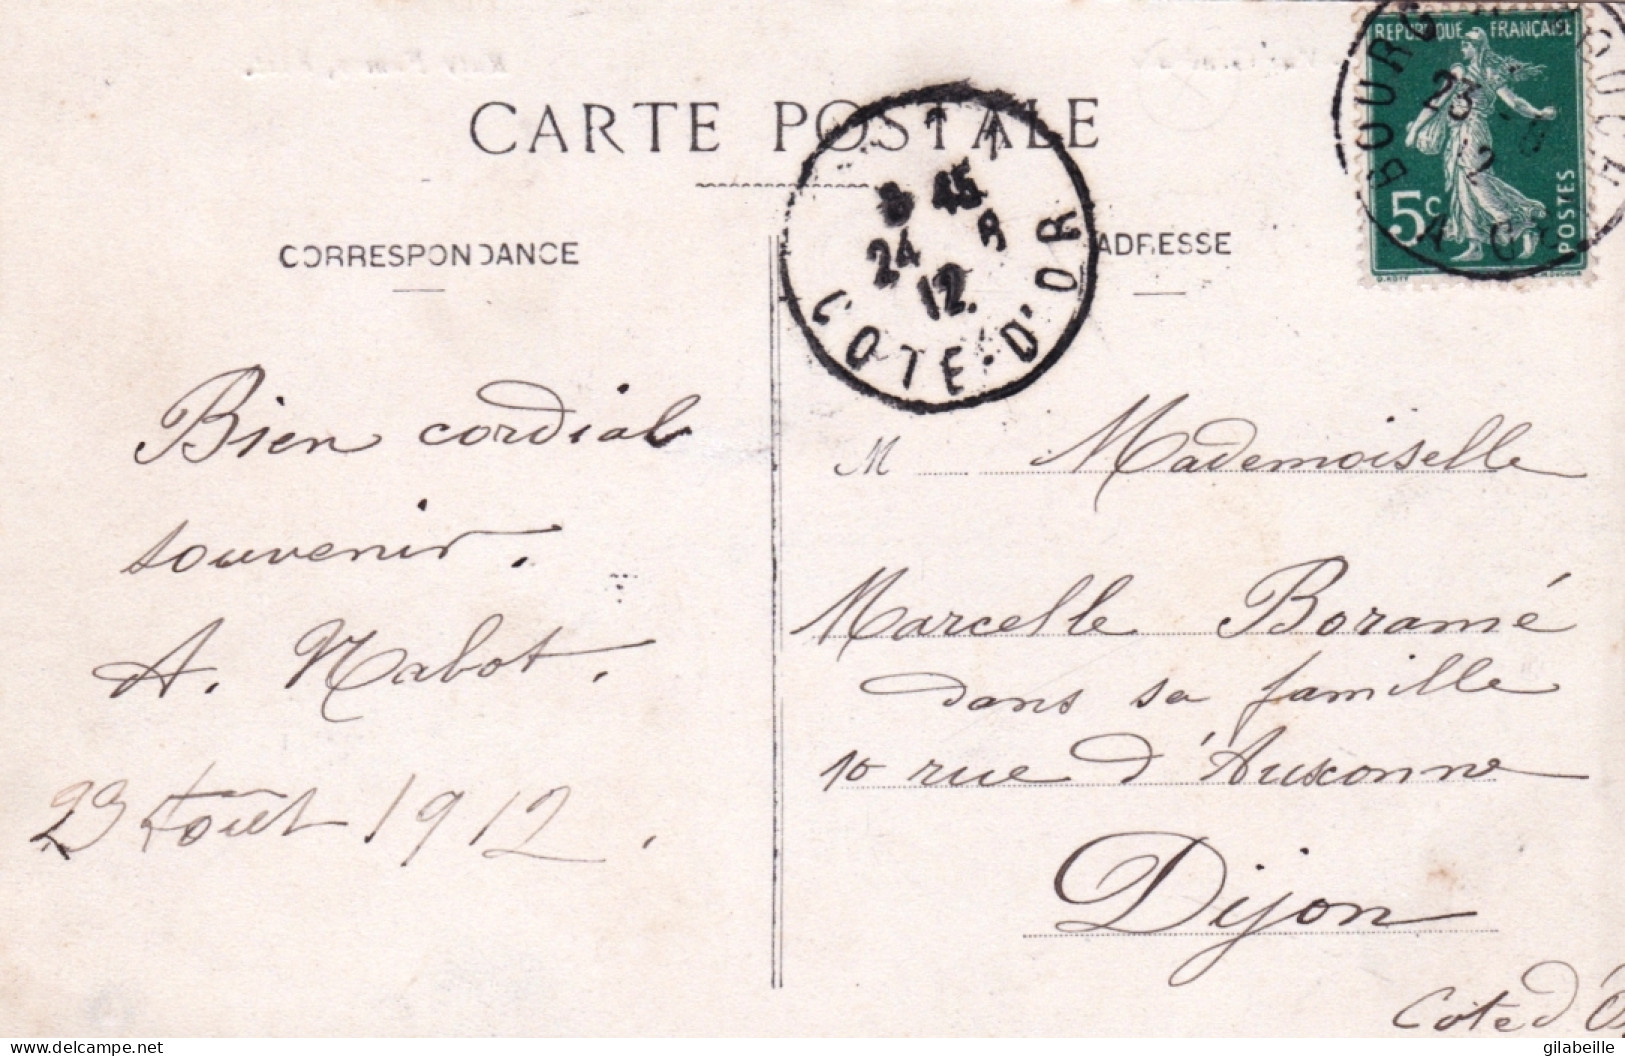 CARTE POSTALE
CORRESPONDANCE
ADRESSE
REPUBLIQUE FRANÇAISE
5c
POSTES
23 - 8
12
8 45
24 8
12
COTE-D'OR
Bien cordial
souvenir.
A. Nabot.
23 Août 1912.
M Mademoiselle
Marcelle Boramé
dans sa famille
10 rue d'Auxonne
Dijon
Cote d'O
gilabeille
delcampe.net